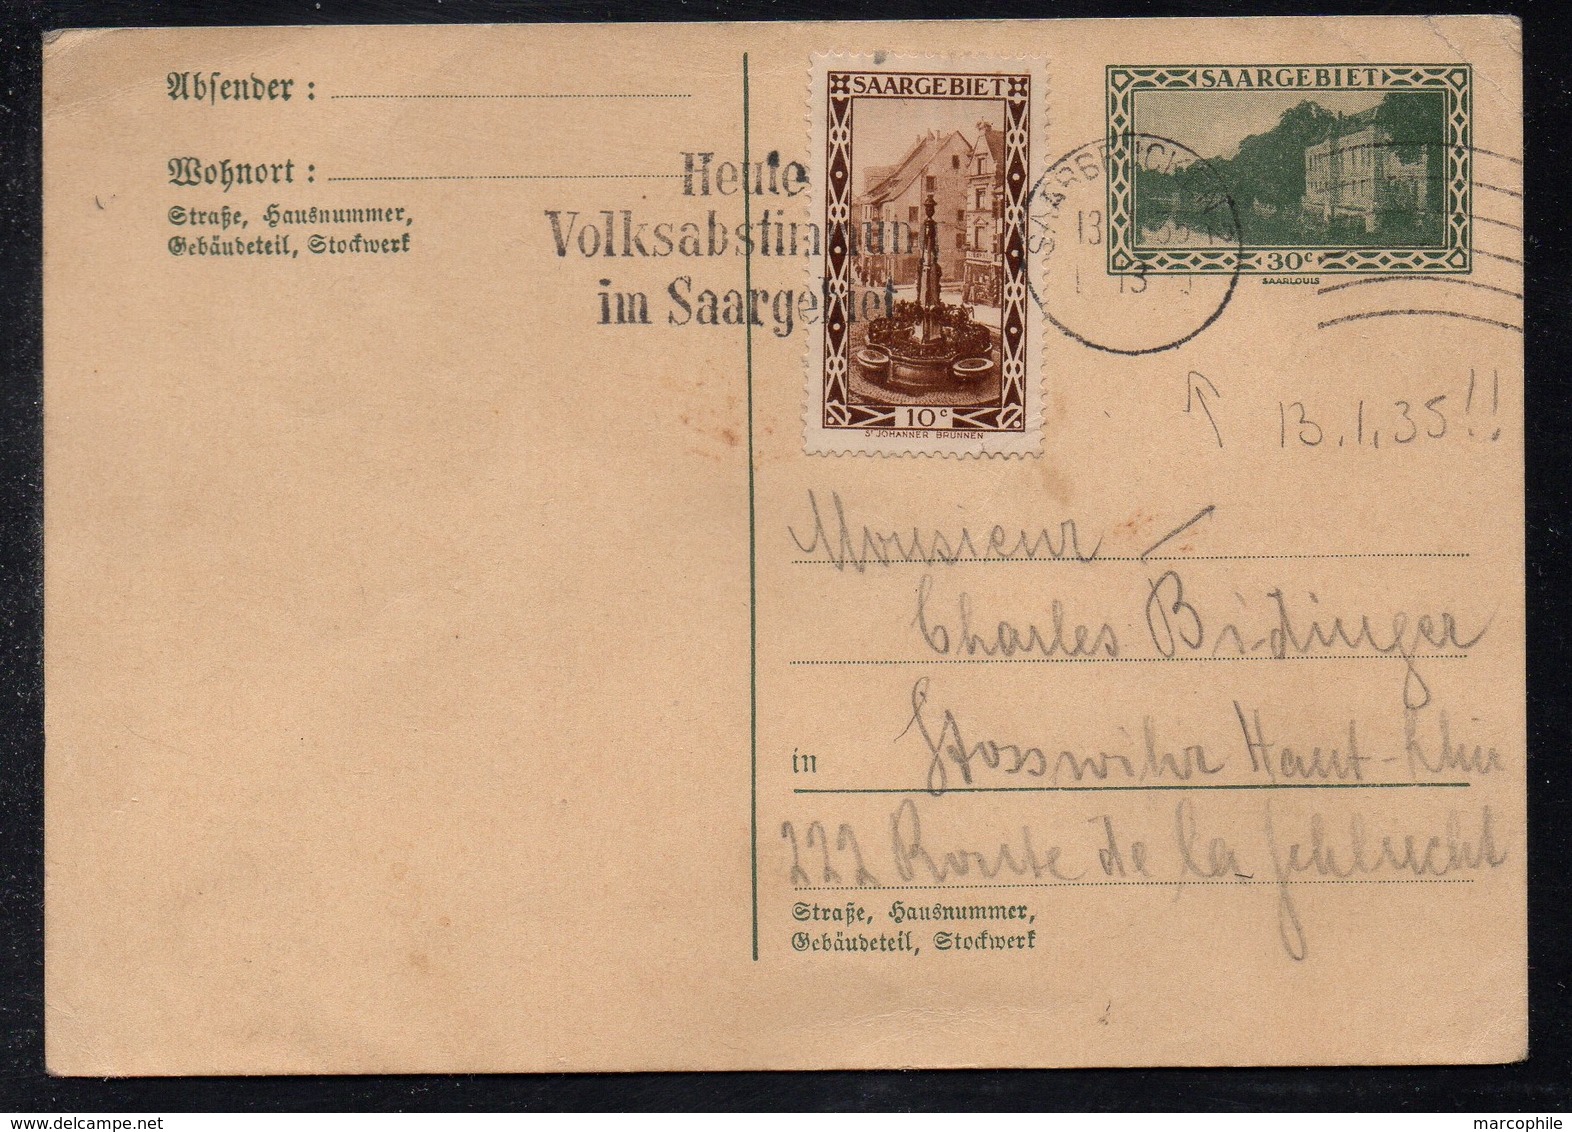 Absender :
Wohnort :
Straße, Hausnummer,
Gebäudeteil, Stockwerk
Heute
Volksabstimmung
im Saargebiet
SAARGEBIET
10c
ST JOHANNER BRUNNEN
SAARBRÜCKEN 2
SAARGEBIET
30c
SAARLOUIS
13.1.35!!
Monsieur
Charles Bidinger
in Stosswihr Haut-Rhin
222 Route de la Schlucht
Straße, Hausnummer,
Gebäudeteil, Stockwerk
marcophile